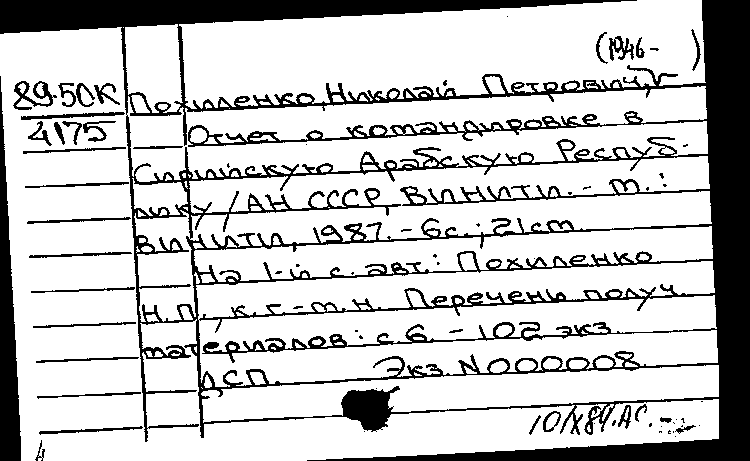 (1946- )
89.50К
4175
Похиленко, Николай Петрович,
Отчет о командировке в
Сирийскую Арабскую Респуб-
лику / АН СССР, ВИНИТИ. - М.:
ВИНИТИ, 1987. - 6 с.; 21 см
На 1-й с. авт.: Похиленко
Н.П., к.г.-м.н. Перечень получ.
материалов: с 6. - 102 экз.
ДСП. Экз. N000008
10/X89.АС.